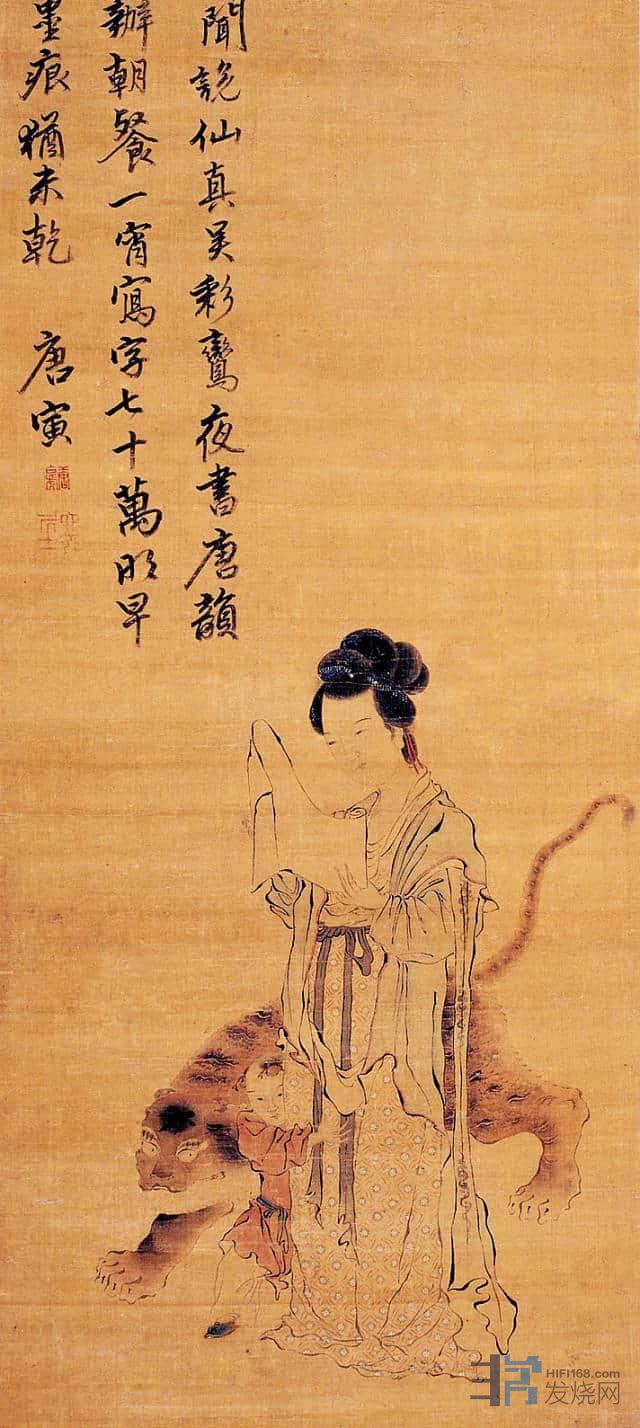 聞説仙真吴彩鸞夜書唐韻
辦朝餐一宵寫字七十萬明早
墨痕猶未乾 唐寅
HIFI168.com
发烧网